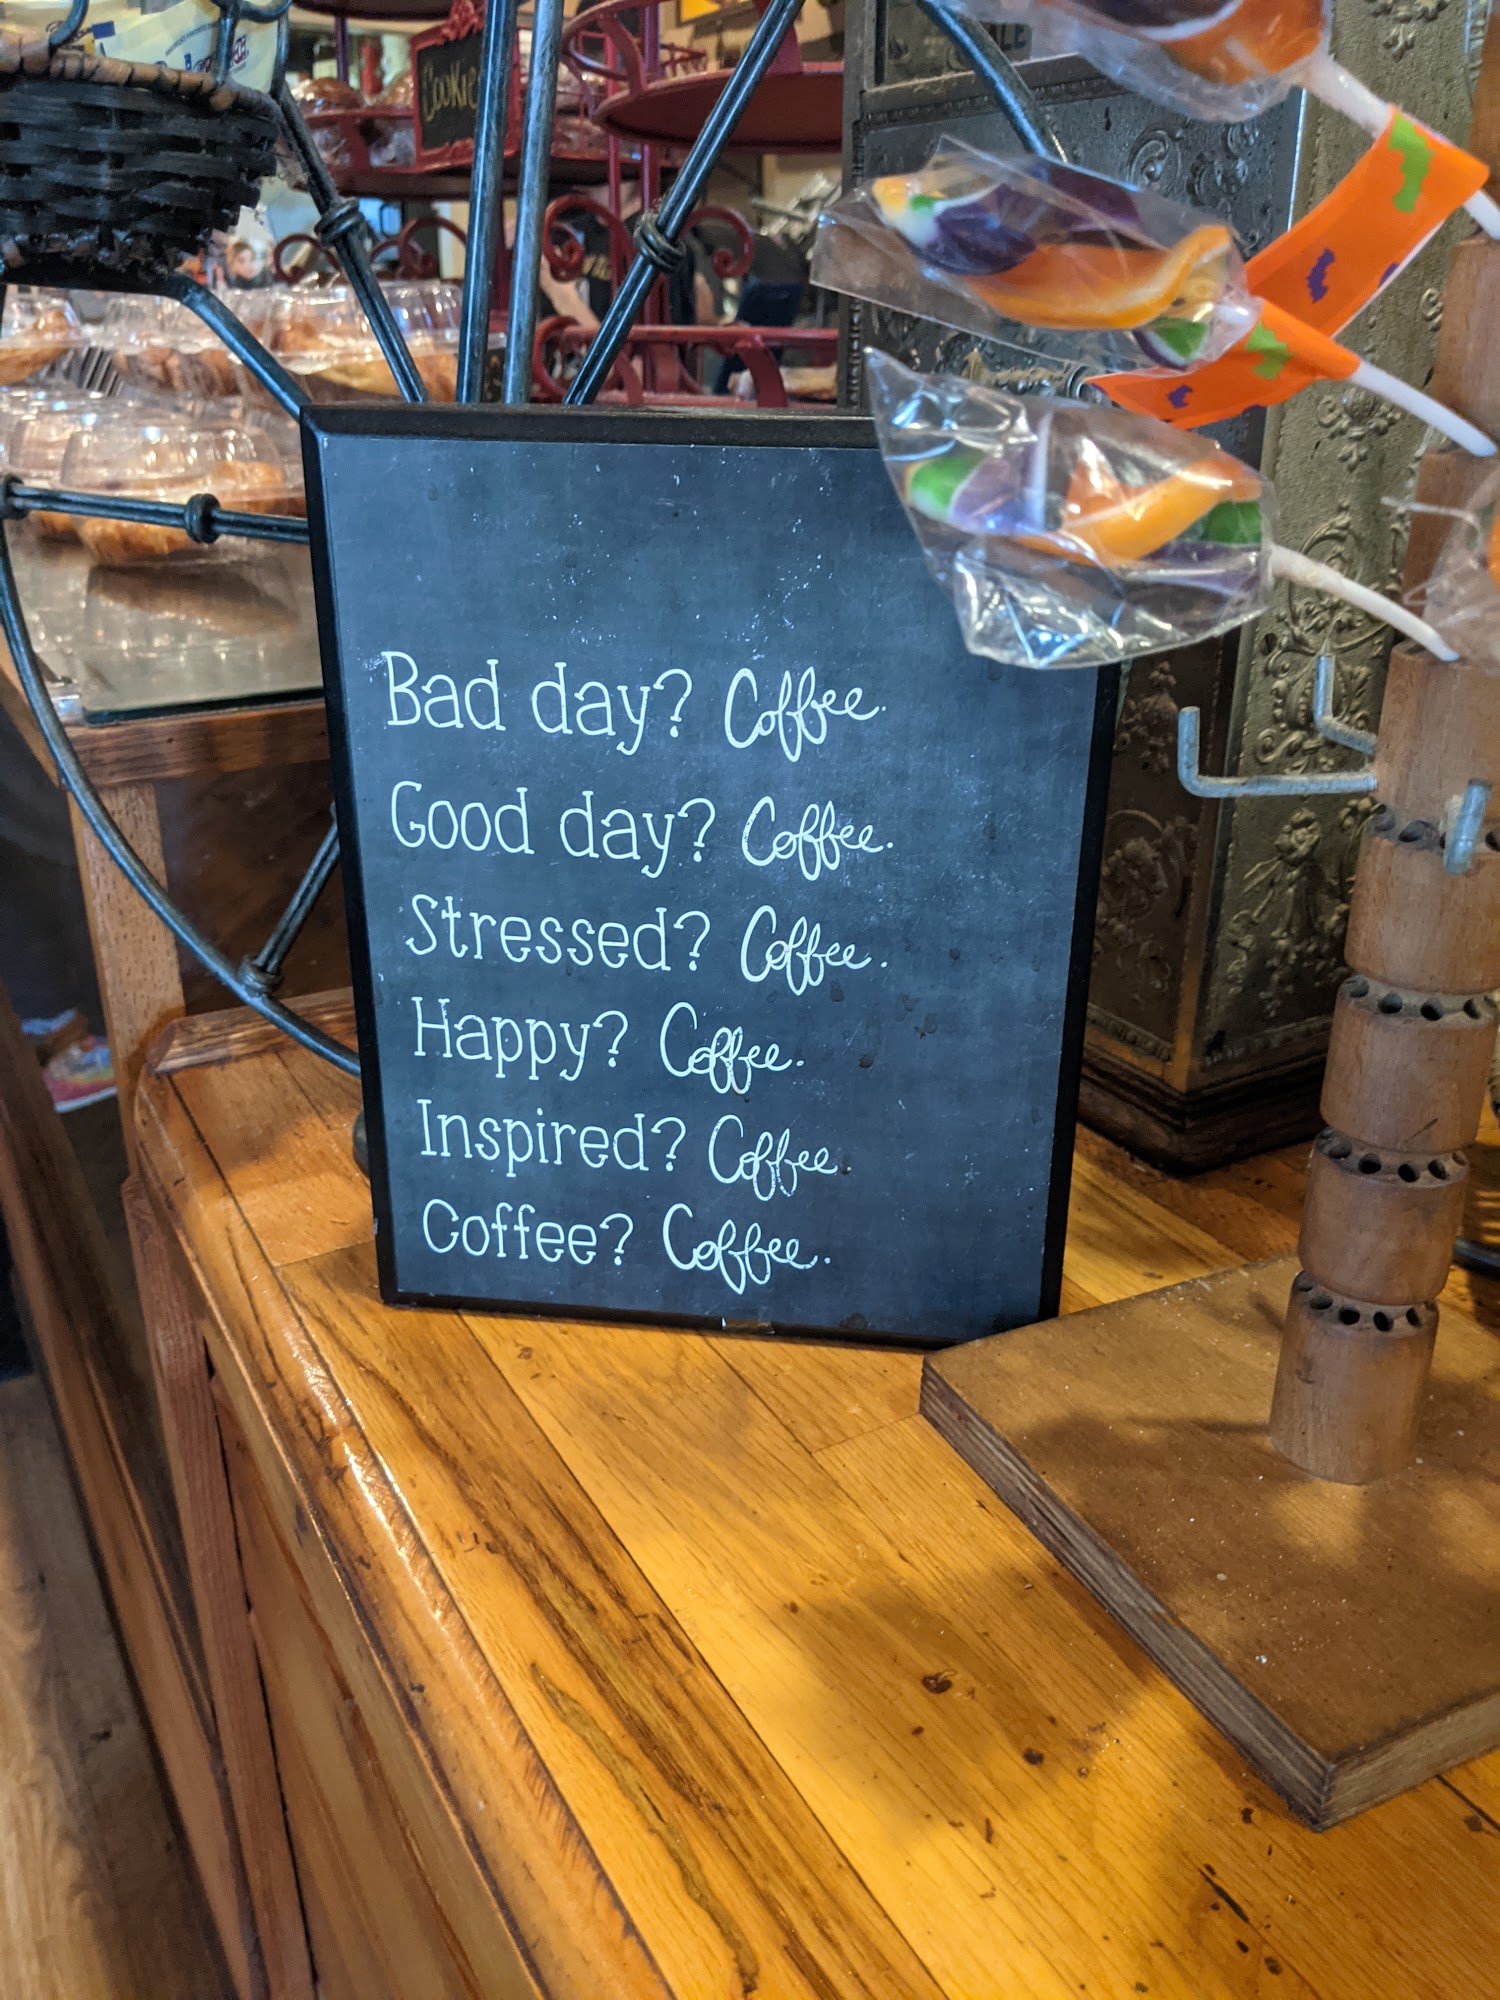 Cookie
Bad day? Coffee.
Good day? Coffee.
Stressed? Coffee.
Happy? Coffee.
Inspired? Coffee.
Coffee? Coffee.